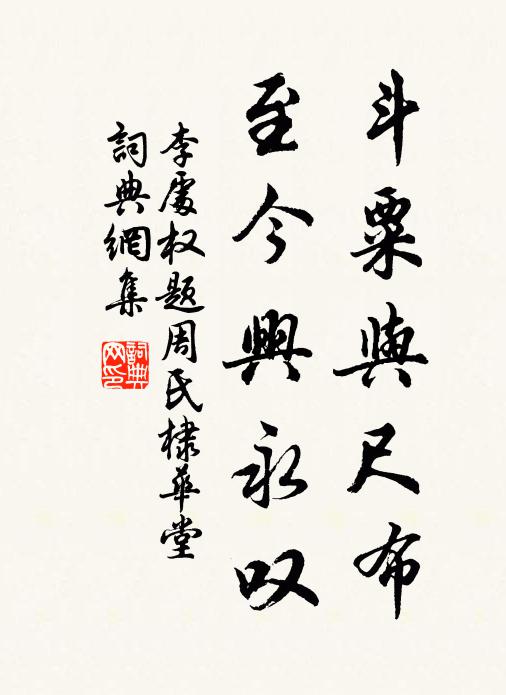 斗粟與尺布
至今興永叹
李處权题周民棣華堂
詞典網集
詞典網印